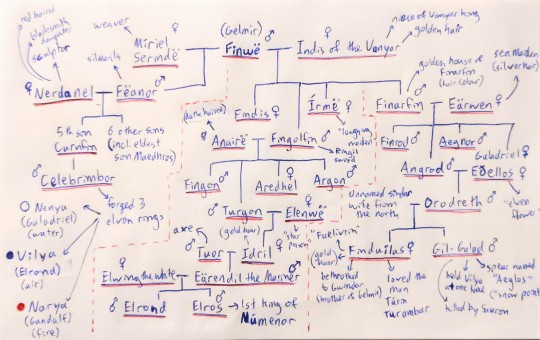 red haired
blacksmith
daughter
sculptor
weaver
silmarils
Míriel
Serindë
(Gelmir)
Finwë
Indis of the Vanyar
niece of Vanyar king
golden hair
golden house of
Finarfin
(hair colour)
sea maiden
(silver hair)
Nerdanel
Fëanor
Findis
Írmë
"longing
maiden"
Finarfin
Eärwen
5th son
Curufin
6 other sons
(incl. eldest
son Maedhros)
(dark haired)
Anairë
Fingolfin
Ringil
sword
Finrod
Aegnor
Galadriel
Angrod
Eðellos
"even
flower"
Celebrimbor
forged 3
elven rings
Fingon
Aredhel
Argon
Unnamed sindar
wife from
the north
Orodreth
Nenya
(Galadriel)
(water)
Turgon
(gold hair)
Elenwë
"star
"Faelivrin"
(gold
hair)
Finduilas
Gil-Galad
Vilya
(Elrond)
(air)
axe
Tuor
Idril
betrothed
to Gwindor
(brother is Gelmir)
loved the
man
Túrin
Turambar
held Vilya
at one time
spear named
"Aeglos"
"snow point"
killed by Sauron
Narya
(Gandalf)
(fire)
Elwing the white
Eärendil the Mariner
Elrond
Elros
1st king of
Númenor